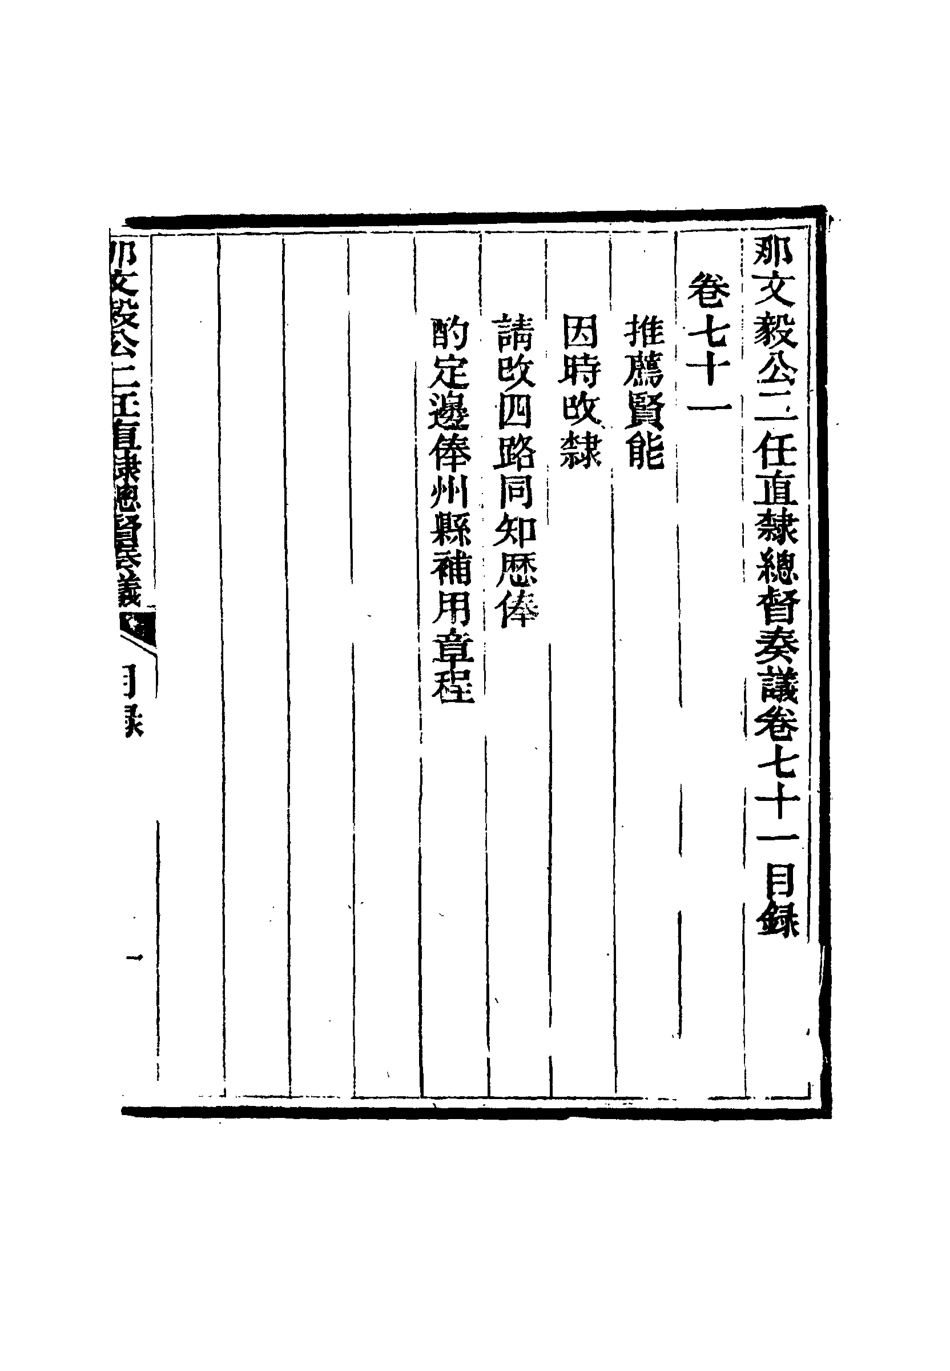 那文毅公二任直隸總督奏議卷七十一目録
卷七十一
推薦賢能
因時改隸
請改四路同知歴俸
酌定邊俸州縣補用章程
那文毅公二任直隸總督奏議
目録
一